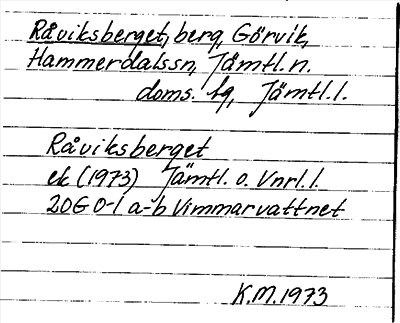 Råviksberget, berg, Görvik,
Hammerdalssn, Jämtl. n.
doms. tg, Jämtl. l.
Råviksberget
ek (1973) Jämtl. o. Vnrl. l.
20G 0-1 a-b Vimmarvattnet
K.M. 1973